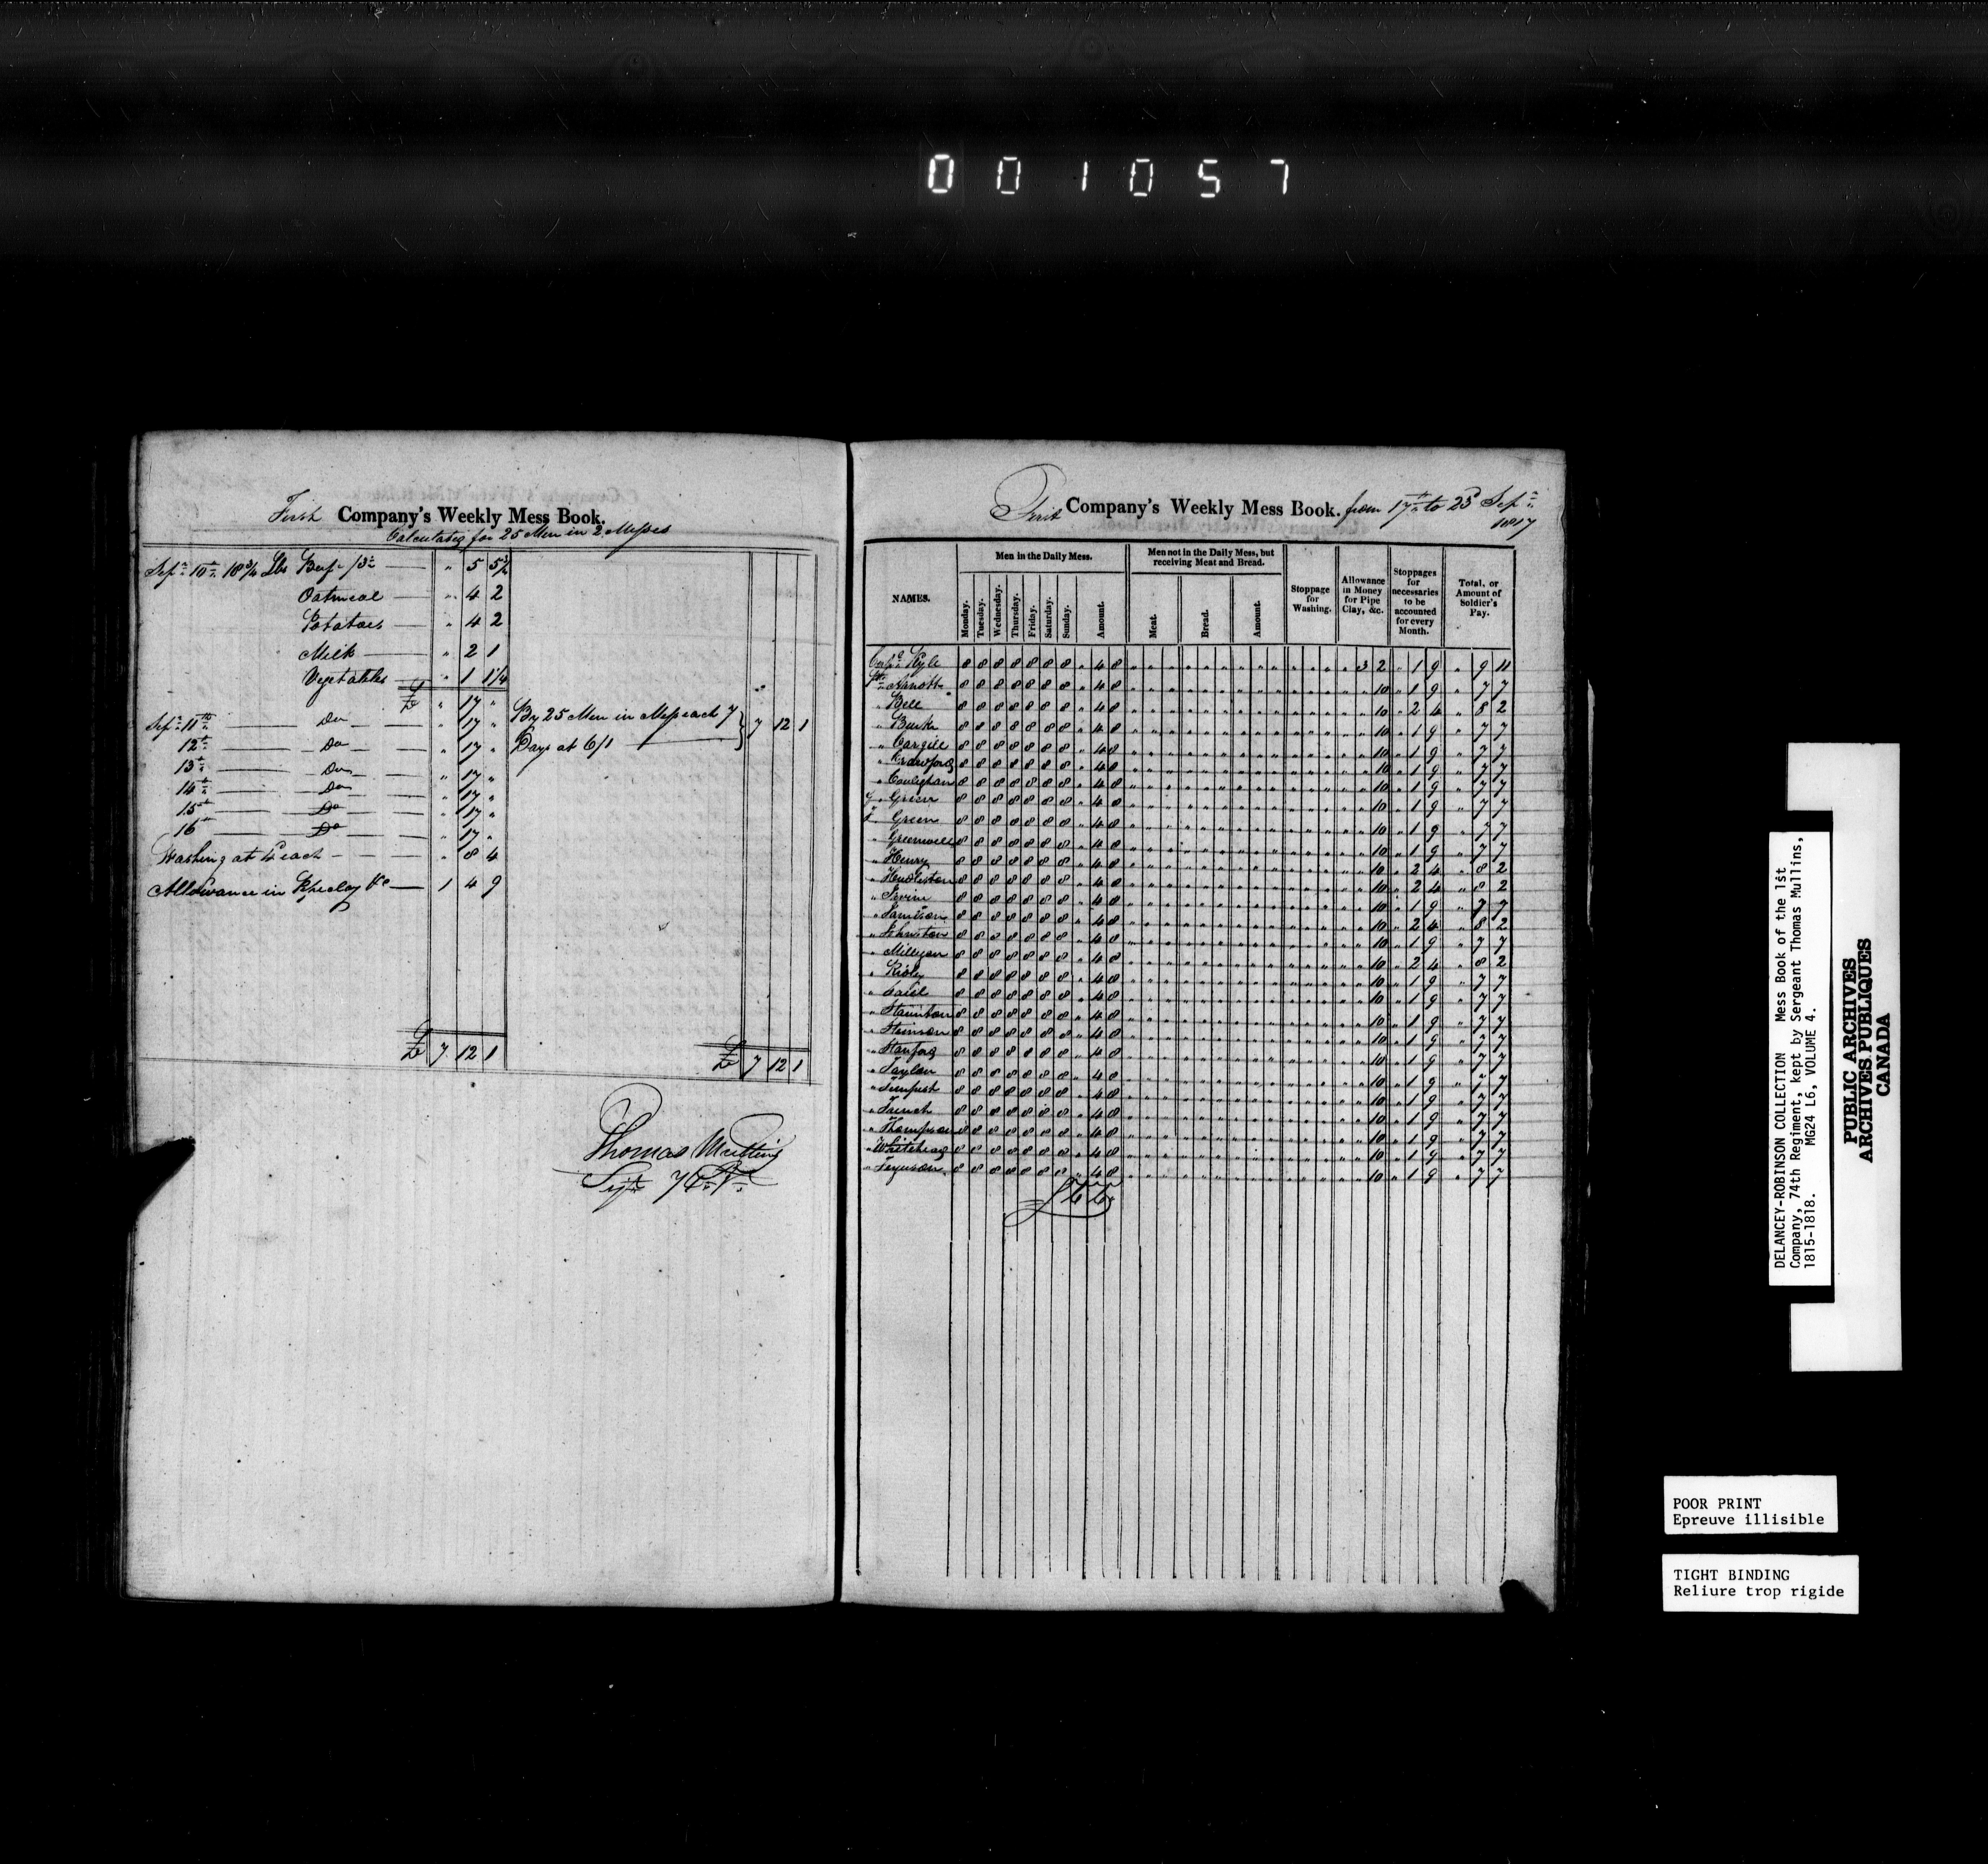 001057
First Company's Weekly Mess Book.
Calculated for 25 Men in 2 Messes
Sepr 10th 18 3/4 Lbs Beef /3d — " 5 5 1/2
Oatmeal — " 4 2
Potatoes — " 4 2
Milk — " 2 1
Vegetables — " 1 1 1/4
£ " 17 "
Sepr 11th — Do — " 17 "
12th — Do — " 17 "
13th — Do — " 17 "
14th — Do — " 17 "
15th — Do — " 17 "
16th — Do — " 17 "
Washing at 4d each — " 8 4
Allowance in Pipeclay &c — 1 4 9
£ 7 12 1
By 25 Men in Mess each 7
Days at 6/1 — } 7 12 1
£ 7 12 1
Thomas Mullins
Sejt 74th Rt
First Company's Weekly Mess Book. from 17th to 23d Sepr
1817
NAMES.
Men in the Daily Mess.
Monday. Tuesday. Wednesday. Thursday. Friday. Saturday. Sunday. Amount.
Men not in the Daily Mess, but receiving Meat and Bread.
Meat. Bread. Amount.
Stoppage for Washing.
Allowance in Money for Pipe Clay, &c.
Stoppages for necessaries to be accounted for every Month.
Total, or Amount of Soldier's Pay.
Corpl Kyle 8 8 8 8 8 8 8 " 4 8 " 3 2 " 1 9 " 9 11
Pte Arnott 8 8 8 8 8 8 8 " 4 8 " " 10 " 1 9 " 7 7
" Bell 8 8 8 8 8 8 8 " 4 8 " " 10 " 2 4 " 8 2
" Burk 8 8 8 8 8 8 8 " 4 8 " " 10 " 1 9 " 7 7
" Cargill 8 8 8 8 8 8 8 " 4 8 " " 10 " 1 9 " 7 7
" Crawford 8 8 8 8 8 8 8 " 4 8 " " 10 " 1 9 " 7 7
" Coulighan 8 8 8 8 8 8 8 " 4 8 " " 10 " 1 9 " 7 7
" Green 8 8 8 8 8 8 8 " 4 8 " " 10 " 1 9 " 7 7
" Green 8 8 8 8 8 8 8 " 4 8 " " 10 " 1 9 " 7 7
" Greenwell 8 8 8 8 8 8 8 " 4 8 " " 10 " 1 9 " 7 7
" Henry 8 8 8 8 8 8 8 " 4 8 " " 10 " 2 4 " 8 2
" Hudleston 8 8 8 8 8 8 8 " 4 8 " " 10 " 2 4 " 8 2
" Irvine 8 8 8 8 8 8 8 " 4 8 " " 10 " 1 9 " 7 7
" Jamison 8 8 8 8 8 8 8 " 4 8 " " 10 " 2 4 " 8 2
" Johnston 8 8 8 8 8 8 8 " 4 8 " " 10 " 1 9 " 7 7
" Milligan 8 8 8 8 8 8 8 " 4 8 " " 10 " 2 4 " 8 2
" 8 8 8 8 8 8 8 " 4 8 " " 10 " 1 9 " 7 7
" 8 8 8 8 8 8 8 " 4 8 " " 10 " 1 9 " 7 7
" Staunton 8 8 8 8 8 8 8 " 4 8 " " 10 " 1 9 " 7 7
" 8 8 8 8 8 8 8 " 4 8 " " 10 " 1 9 " 7 7
" Stanford 8 8 8 8 8 8 8 " 4 8 " " 10 " 1 9 " 7 7
" Taylor 8 8 8 8 8 8 8 " 4 8 " " 10 " 1 9 " 7 7
" Tempest 8 8 8 8 8 8 8 " 4 8 " " 10 " 1 9 " 7 7
" 8 8 8 8 8 8 8 " 4 8 " " 10 " 1 9 " 7 7
" Thompson 8 8 8 8 8 8 8 " 4 8 " " 10 " 1 9 " 7 7
" Whitehead 8 8 8 8 8 8 8 " 4 8 " " 10 " 1 9 " 7 7
" Ferguson 8 8 8 8 8 8 8 " 4 8 " " 10 " 1 9 " 7 7
DELANCEY-ROBINSON COLLECTION Mess Book of the 1st
Company, 74th Regiment, kept by Sergeant Thomas Mullins,
1815-1818. MG24 L6, VOLUME 4.
PUBLIC ARCHIVES
ARCHIVES PUBLIQUES
CANADA
POOR PRINT
Epreuve illisible
TIGHT BINDING
Reliure trop rigide